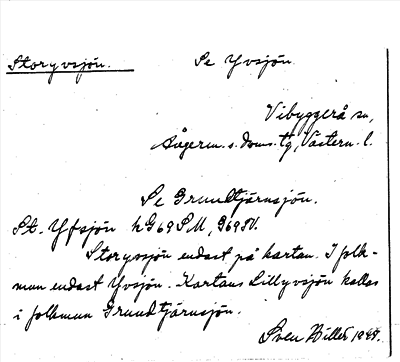 Storyvsjön. Se Yvsjön
Vibyggerå sn,
Ångerm. s. doms. tg, Västern. l.
Se Grundtjärnsjön.
St. Yfsjön kG69SM, G69SV.
Storyvsjön endast på kartan. I folk-
mun endast Yvsjön. Kartans Lillyvsjön kallas
i folkmun Grundtjärnsjön.
Sven Hillert